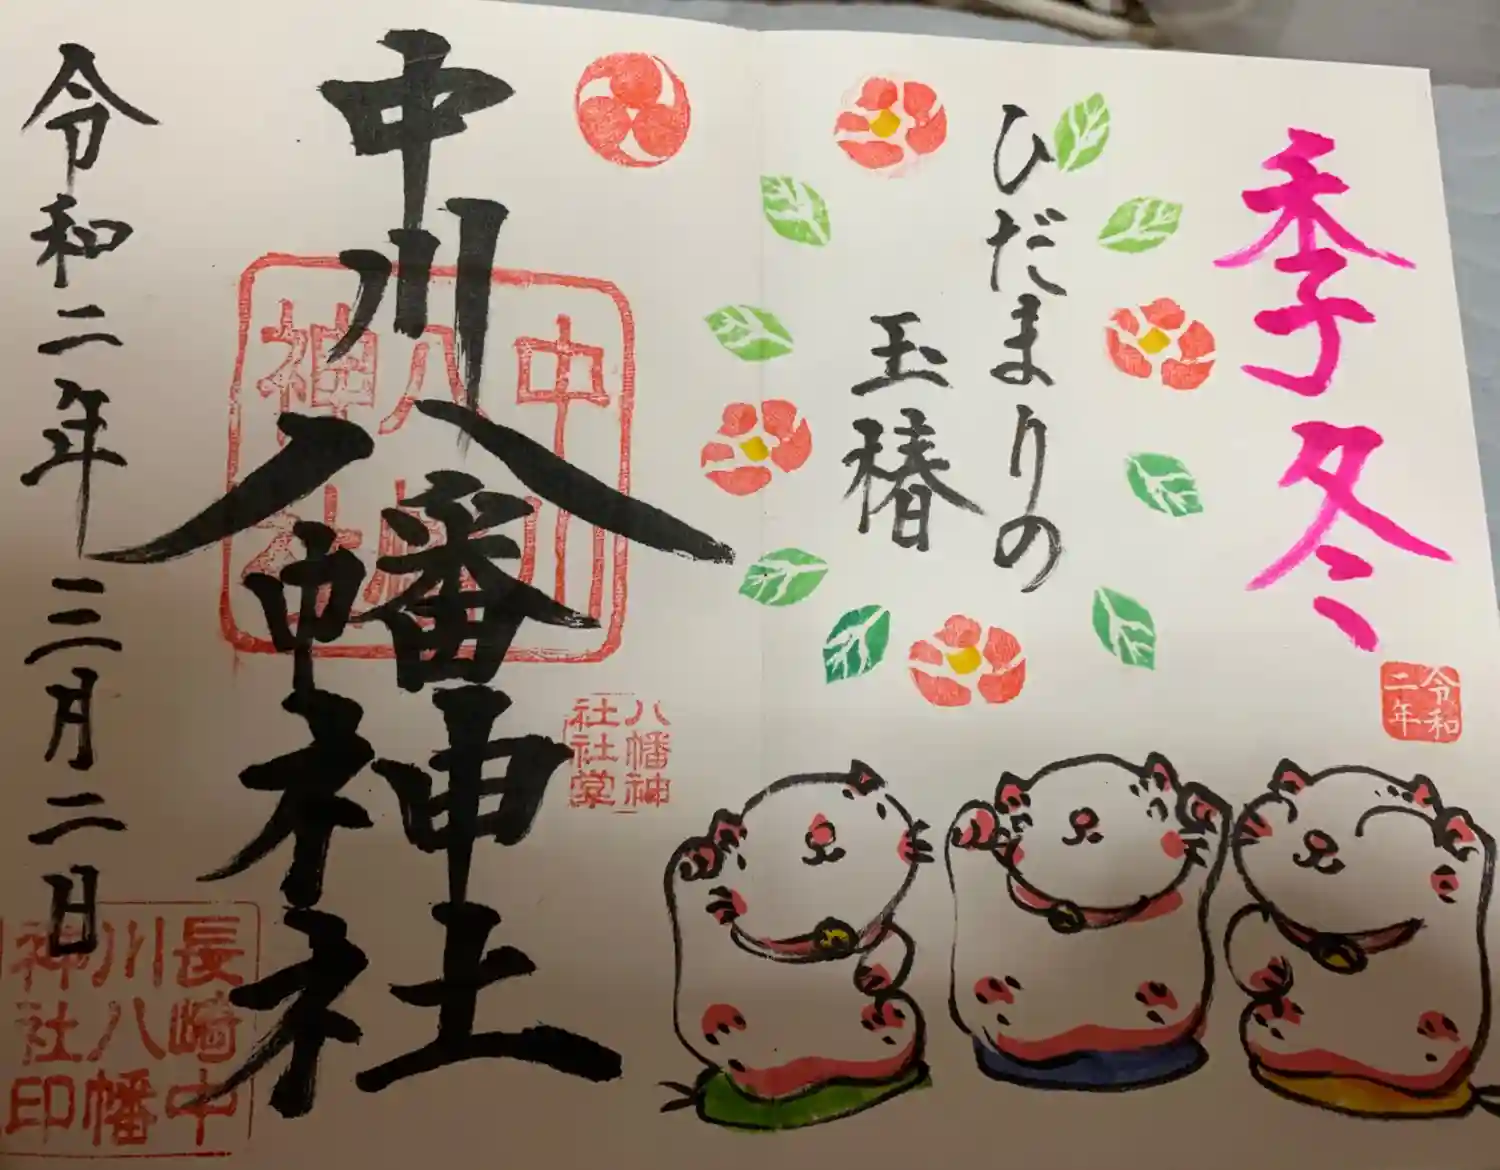 季冬
ひだまりの
玉椿
令和
二年
中川八幡神社
中川
八幡
神社
八幡神
社社堂
令和二年三月二日
長崎中
川八幡
神社印